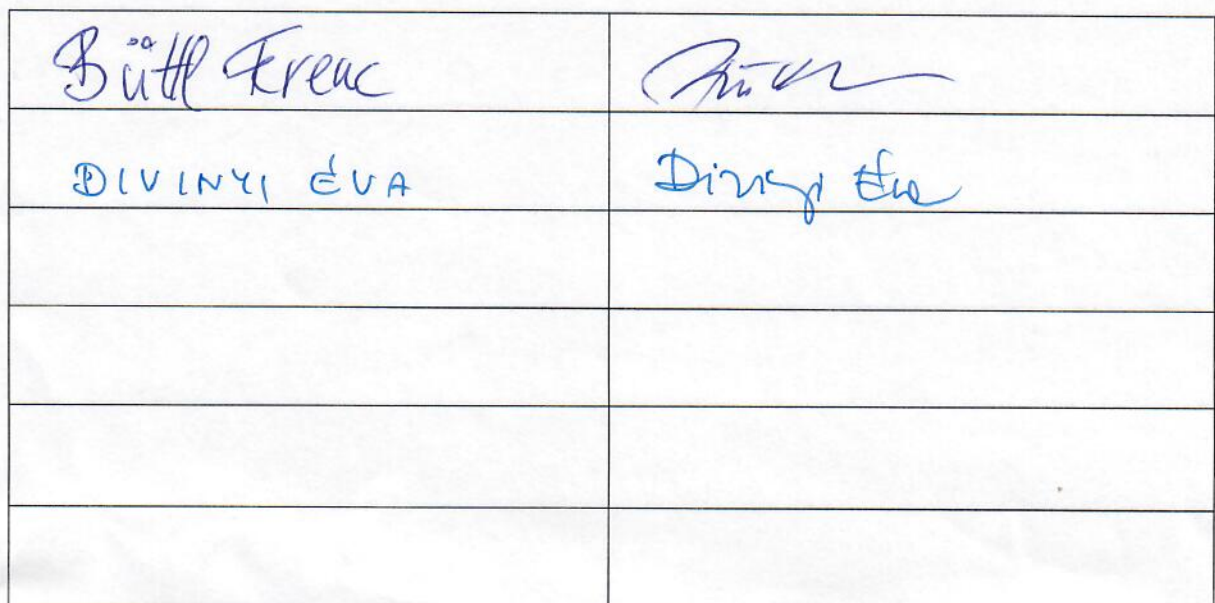 Büttl Ferenc
DIVINYI ÉVA Divinyi Éva